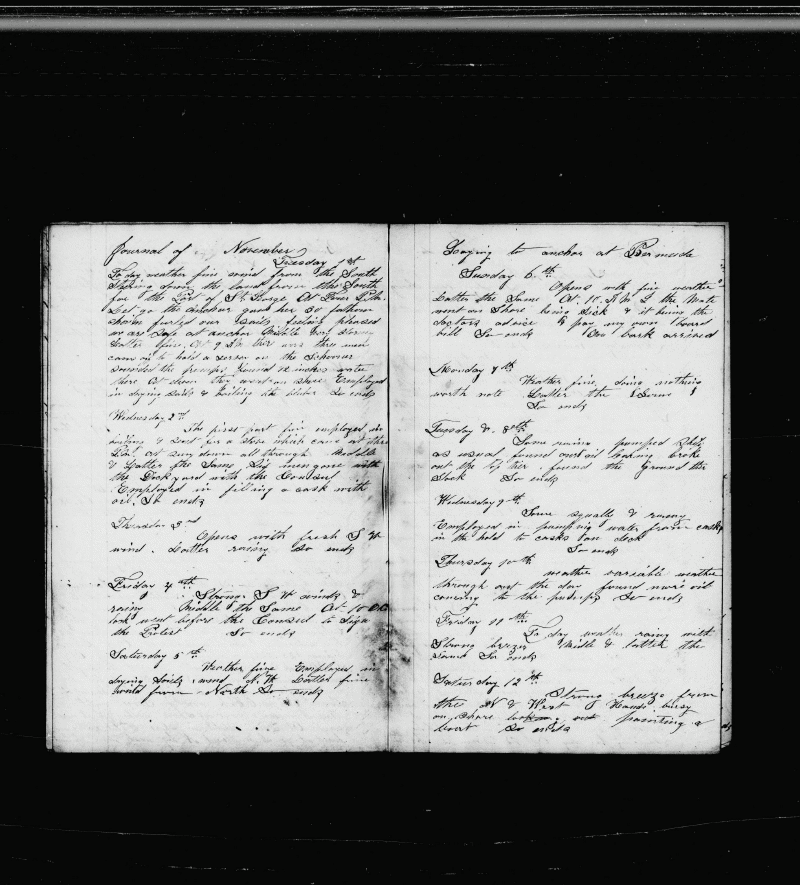 Journal of November
Tuesday 1st
To day weather fine wind from the South
Steering down the land from the South
for the Port of St. George. At Four P.M.
Let go the anchor gave her 30 fathom
chain furled our Sails feeling pleased
we are Safe at anchor Middle
Latter fine. At 9 A.M. there was three men
came on to hold a on the Schooner
sounded the pumps found 12 inches water
there At they went on shore Employed
in drying sails & boiling the So ends
Wednesday 2nd
The first part fine employed in
& for a which came at the
At Sun down all through Middle
& Latter the Same. men gone with
the Dockyard with the Consul
Employed in filling a cask with
oil. So ends
Thursday 3rd
Opens with fresh S W
wind. Latter rainy So ends
Friday 4th
Strong S W winds &
rainy Middle the Same At 10 O C
lock went before the Consul to Sign
the Protest So ends
Saturday 5th
Weather fine Employed in
drying Sails wind N.W. Latter fine
wind from North So ends
Laying to anchor at Bermuda
Sunday 6th
Opens with fine weather
Latter the Same At 10 A M I the Mate
went on Shore being Sick & it being the
doctors advice I pay my own board
bill So ends arrived
Monday 7th
Weather fine doing nothing
worth note Latter the Same
So ends
Tuesday 8th
Some rainy pumped Ship
as usual found out oil broke
out the of her found the ground tier
So ends
Wednesday 9th
Some squalls & rainy
Employed in pumping water from casks
in the hold to casks on deck
So ends
Thursday 10th
weather variable weather
through out the day found more oil
coming to the pumps So ends
Friday 11th
To day weather rainy with
Strong breeze Middle & latter the
same So ends
Saturday 12th
Strong breeze from
the N & West Hands busy
on Shore painting a
boat So ends